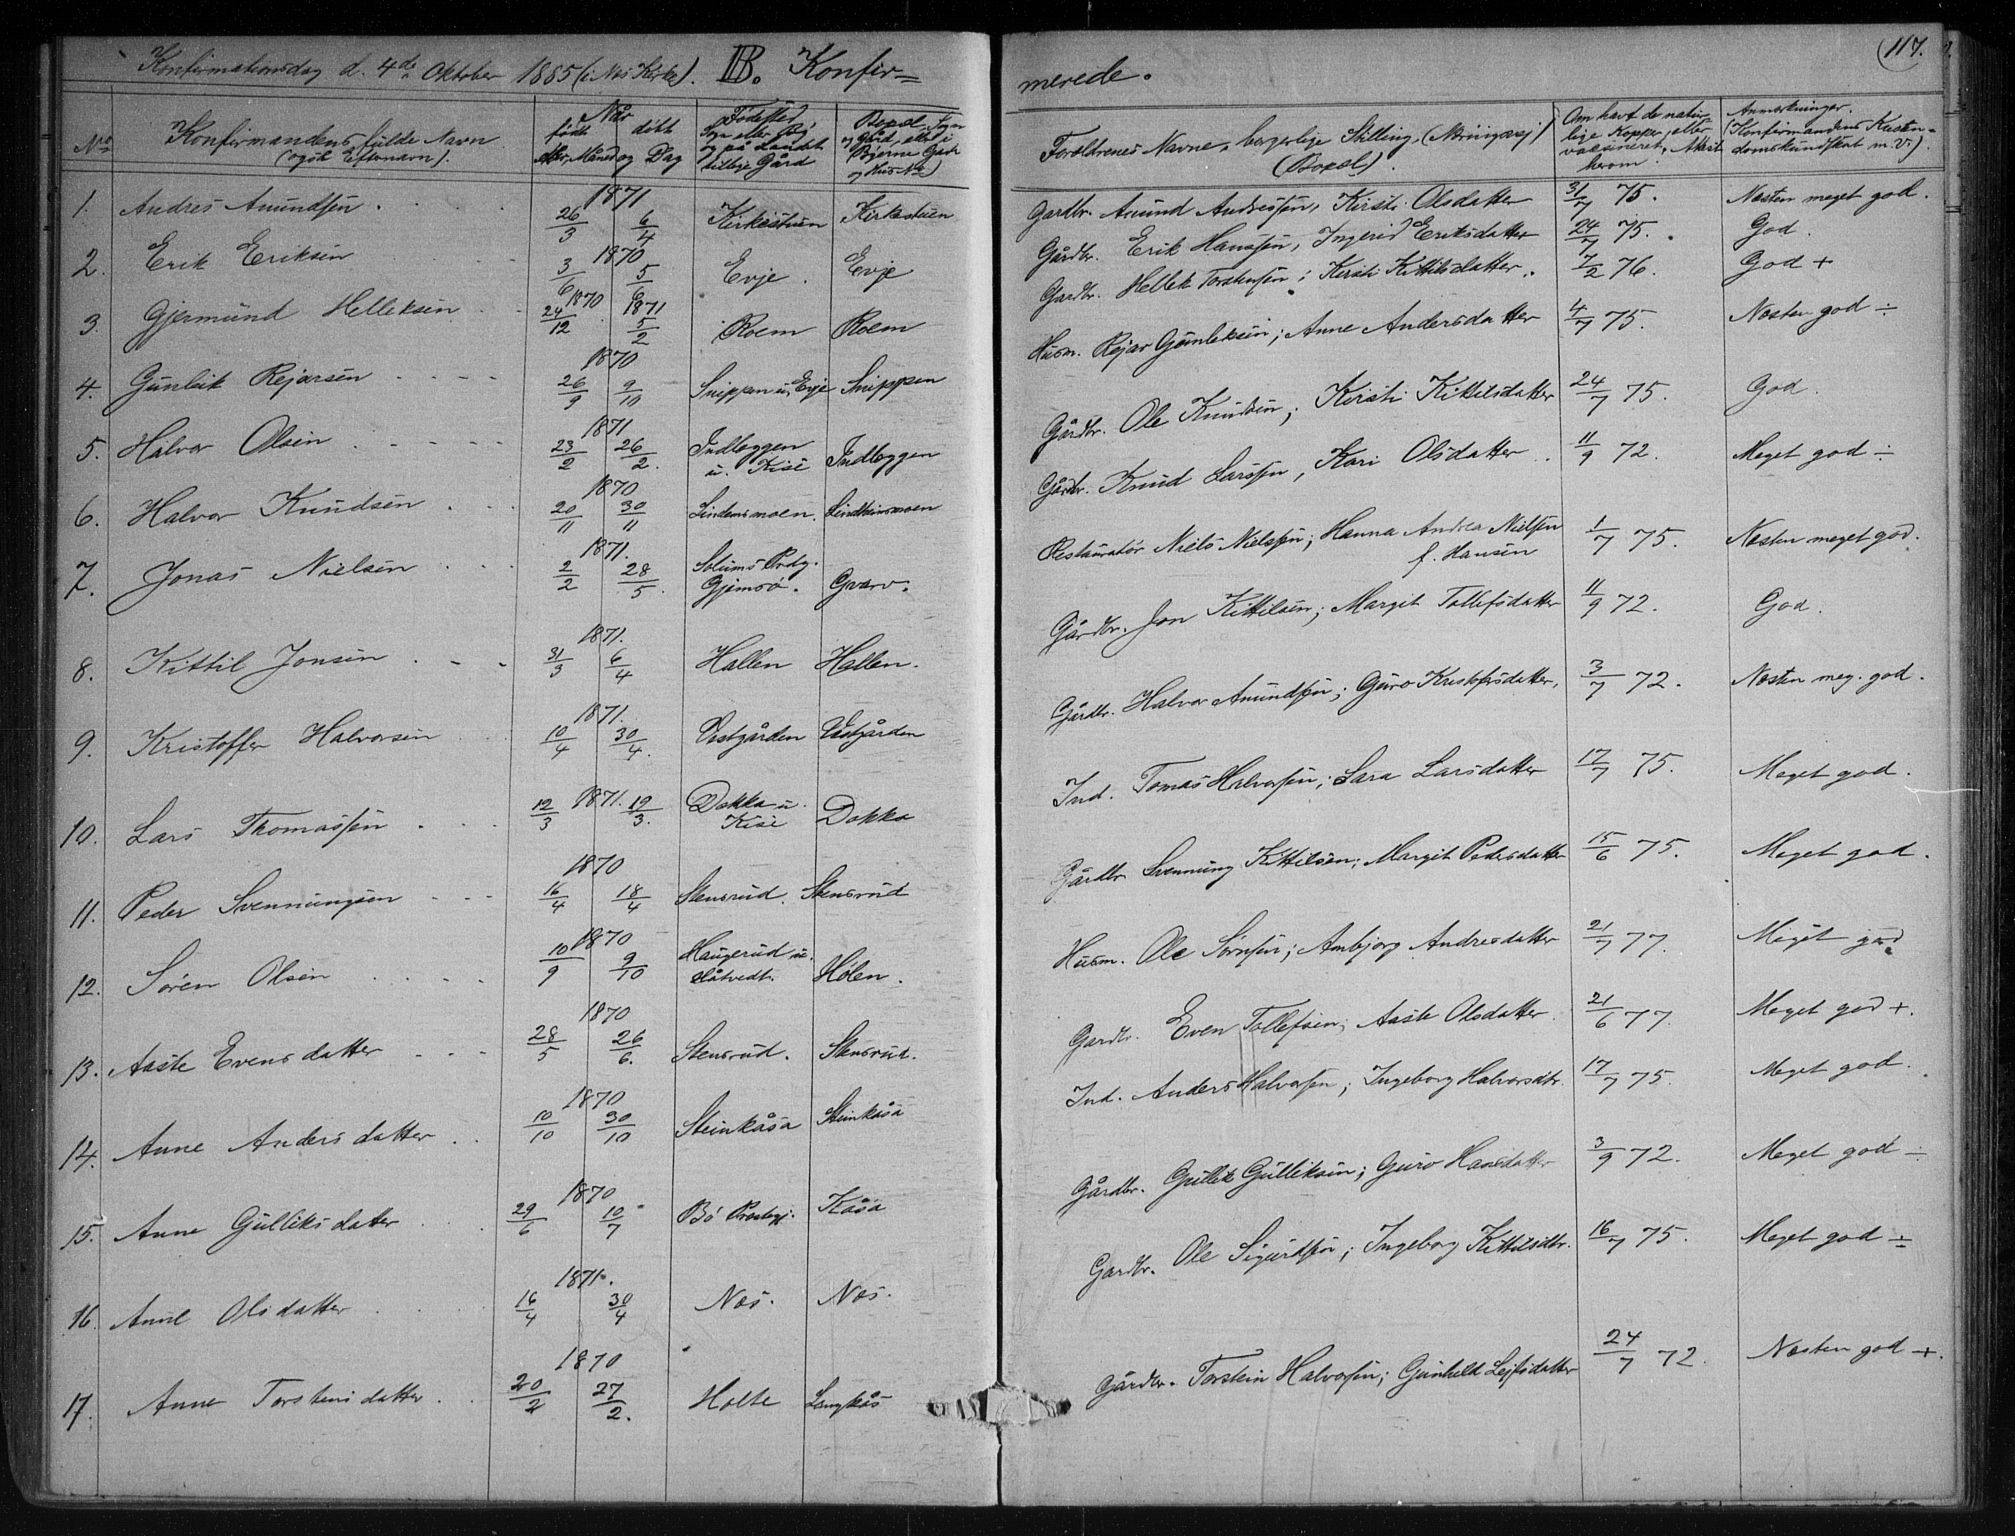 Konfirmationsdag d. 4de Oktober 1885 (i Nes Kirke). IIB. Konfir=
merede. 117.
No
Konfirmandens fulde Navn
(også Efternavn).
Når
født døbt
Aar, Måned og Dag
Fødested
Sogn eller By,
og på Landet
tillige Gård
Bopæl, Sogn
og Gård, eller i
Byerne Gade
og Hus No)
Forældrenes Navne, borgerlige Stilling, (Næringsvej)
(Bopæl).
Om havt de natur-
lige Kopper, eller
vaccineret, Attest
herom.
Anmærkninger.
(Konfirmandens Kristen-
domskundskab m. v.)
1871
1. Andres Amundsen. 26/3 6/4 Kirkestuen Kirkestuen Gardbr. Amund Andressen, Kirsti Olsdatter 31/7 75. Næsten meget god.
1870
2. Erik Eriksen 3/6 5/6 Evje. Evje Gårdbr. Erik Hanssen, Ingerid Eriksdatter 24/7 75. God.
1870 1871
3. Gjermund Helleksen 24/12 5/2 Roem Roem Gardbr. Hellek Torstensen; Kirsti Kittilsdatter. 7/2 76. God +
1870
4. Gunleik Rejarsen 26/9 9/10 Snippen u. Evje Snippen Husm. Rejar Gunleksen; Anne Andersdatter 4/7 75. Næsten god ÷
1871
5. Halvor Olsen 23/2 26/2. Indlæggen Indlæggen Gårdbr. Ole Knudsen; Kirsti Kittilsdatter 24/7 75. God.
u. Kise
1870
6. Halvor Knudsen 20/11 30/11 Lindemsmoen. Lindheimsmoen Gårdbr. Knud Larssen, Kari Olsdatter 11/9 72. Meget god ÷
1871.
7. Jonas Nielsen 2/2 28/5. Solums Prdg. Gvarv. Restauratør Niels Nielsen; Hanna Andrea Nielsen 1/7 75. Næsten meget god.
Gjemsø. f. Hansen
1871.
8. Kittil Jonsen 31/3 6/4 Hallen Hallen. Gårdbr. Jon Kittilsen; Margit Tollefsdatter 11/9 72. God.
1871.
9. Kristoffer Halvorsen 10/4 30/4. Vestgården Vestgården Gårdbr. Halvor Amundsen; Guro Kristofersdatter, 3/7 72. Næsten meg. god.
1871.
10. Lars Thomassen 12/3 19/3. Dokka u. Dokka Ind. Tomas Halvorsen; Sara Larsdatter 17/7 75. Meget god.
Kise
1870
11. Peder Svenningsen 16/4 18/4 Stensrud. Stensrud Gårdbr. Svenning Kittilsen; Margit Pedersdatter 15/6 75. Meget god.
1870
12. Søren Olsen 10/9 9/10 Haugerud u. Hølen. Husm. Ole Sørensen; Ambjørg Andresdatter 21/7 77. Meget god
Slåtvedt.
1870
13. Aaste Evensdatter 28/5 26/6. Stensrud. Stensrud. Gardbr. Even Tollefsen; Aaste Olsdatter 21/6 77. Meget god +.
1870
14. Anne Andersdatter 10/10 30/10 Steinkåsa Steinkåsa Ind. Anders Halvorsen; Ingeborg Halvorsdtr. 17/7 75. Meget god.
1870
15. Anne Gulliksdatter 29/6 10/7 Bø Prestegj. Kåsa Gårdbr. Gullik Gulliksen; Guro Hansdatter 3/9 72. Meget god ÷
1871.
16. Anne Olsdatter 16/4 30/4 Nes. Nes. Gardbr. Ole Sigurdsen; Ingeborg Kittilsdtr. 16/7 75. Meget god ÷
1870
17. Anne Torstensdatter 20/2 27/2. Holte Langkås Gårdbr. Torstein Halvorsen; Gunhild Lejfsdatter 24/7 72. Næsten god +.